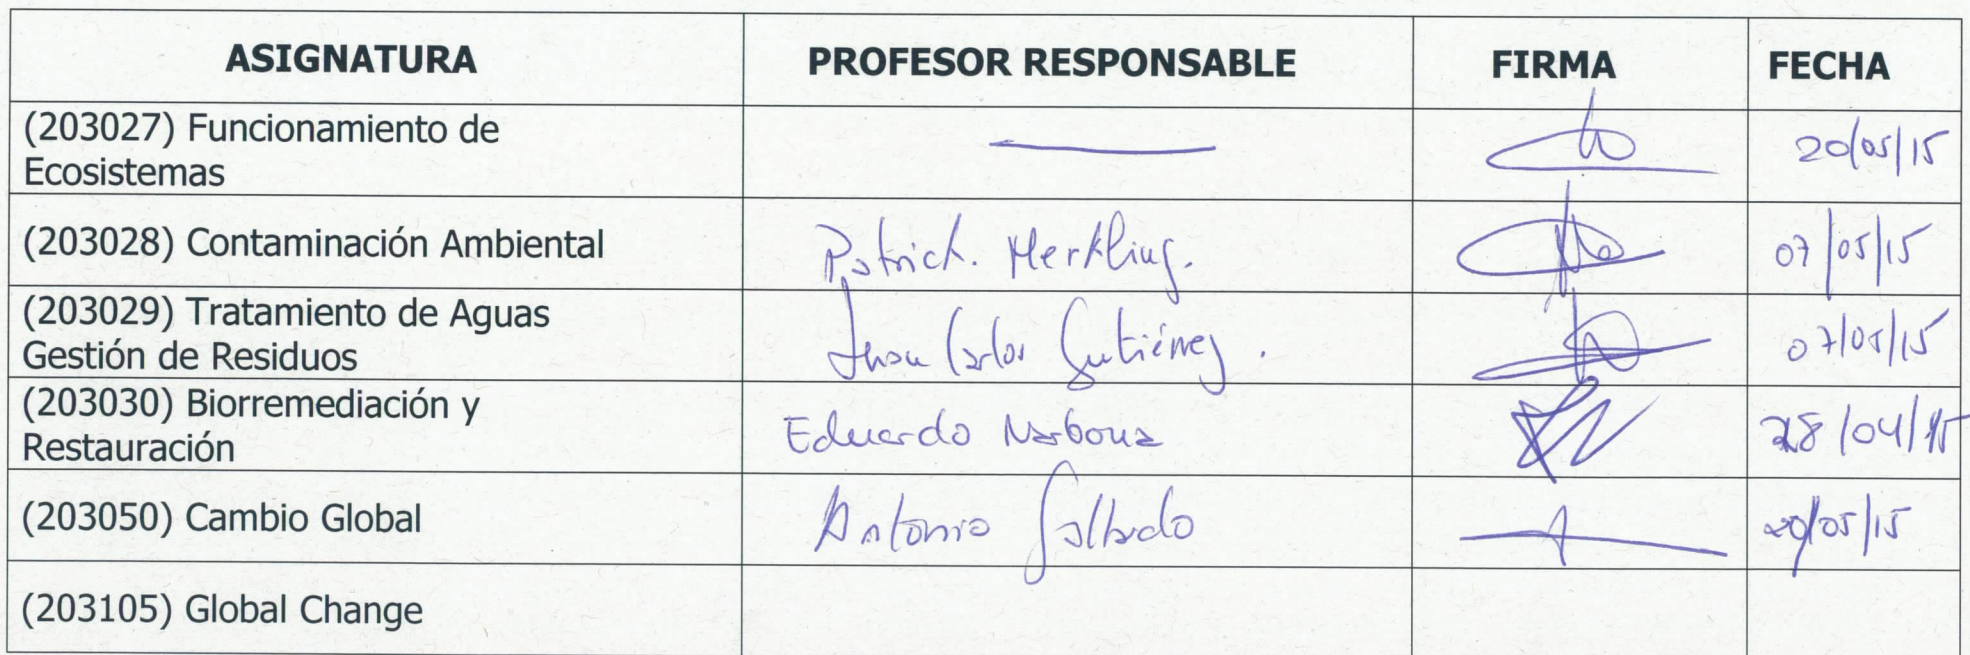 ASIGNATURA PROFESOR RESPONSABLE FIRMA FECHA
(203027) Funcionamiento de
Ecosistemas
20/05/15
(203028) Contaminación Ambiental
Patrick. Merkling.
07/05/15
(203029) Tratamiento de Aguas
Gestión de Residuos
Juan Carlos Gutiérrez.
07/05/15
(203030) Biorremediación y
Restauración
Eduardo Narbona
28/04/15
(203050) Cambio Global
Antonio Gallardo
20/05/15
(203105) Global Change